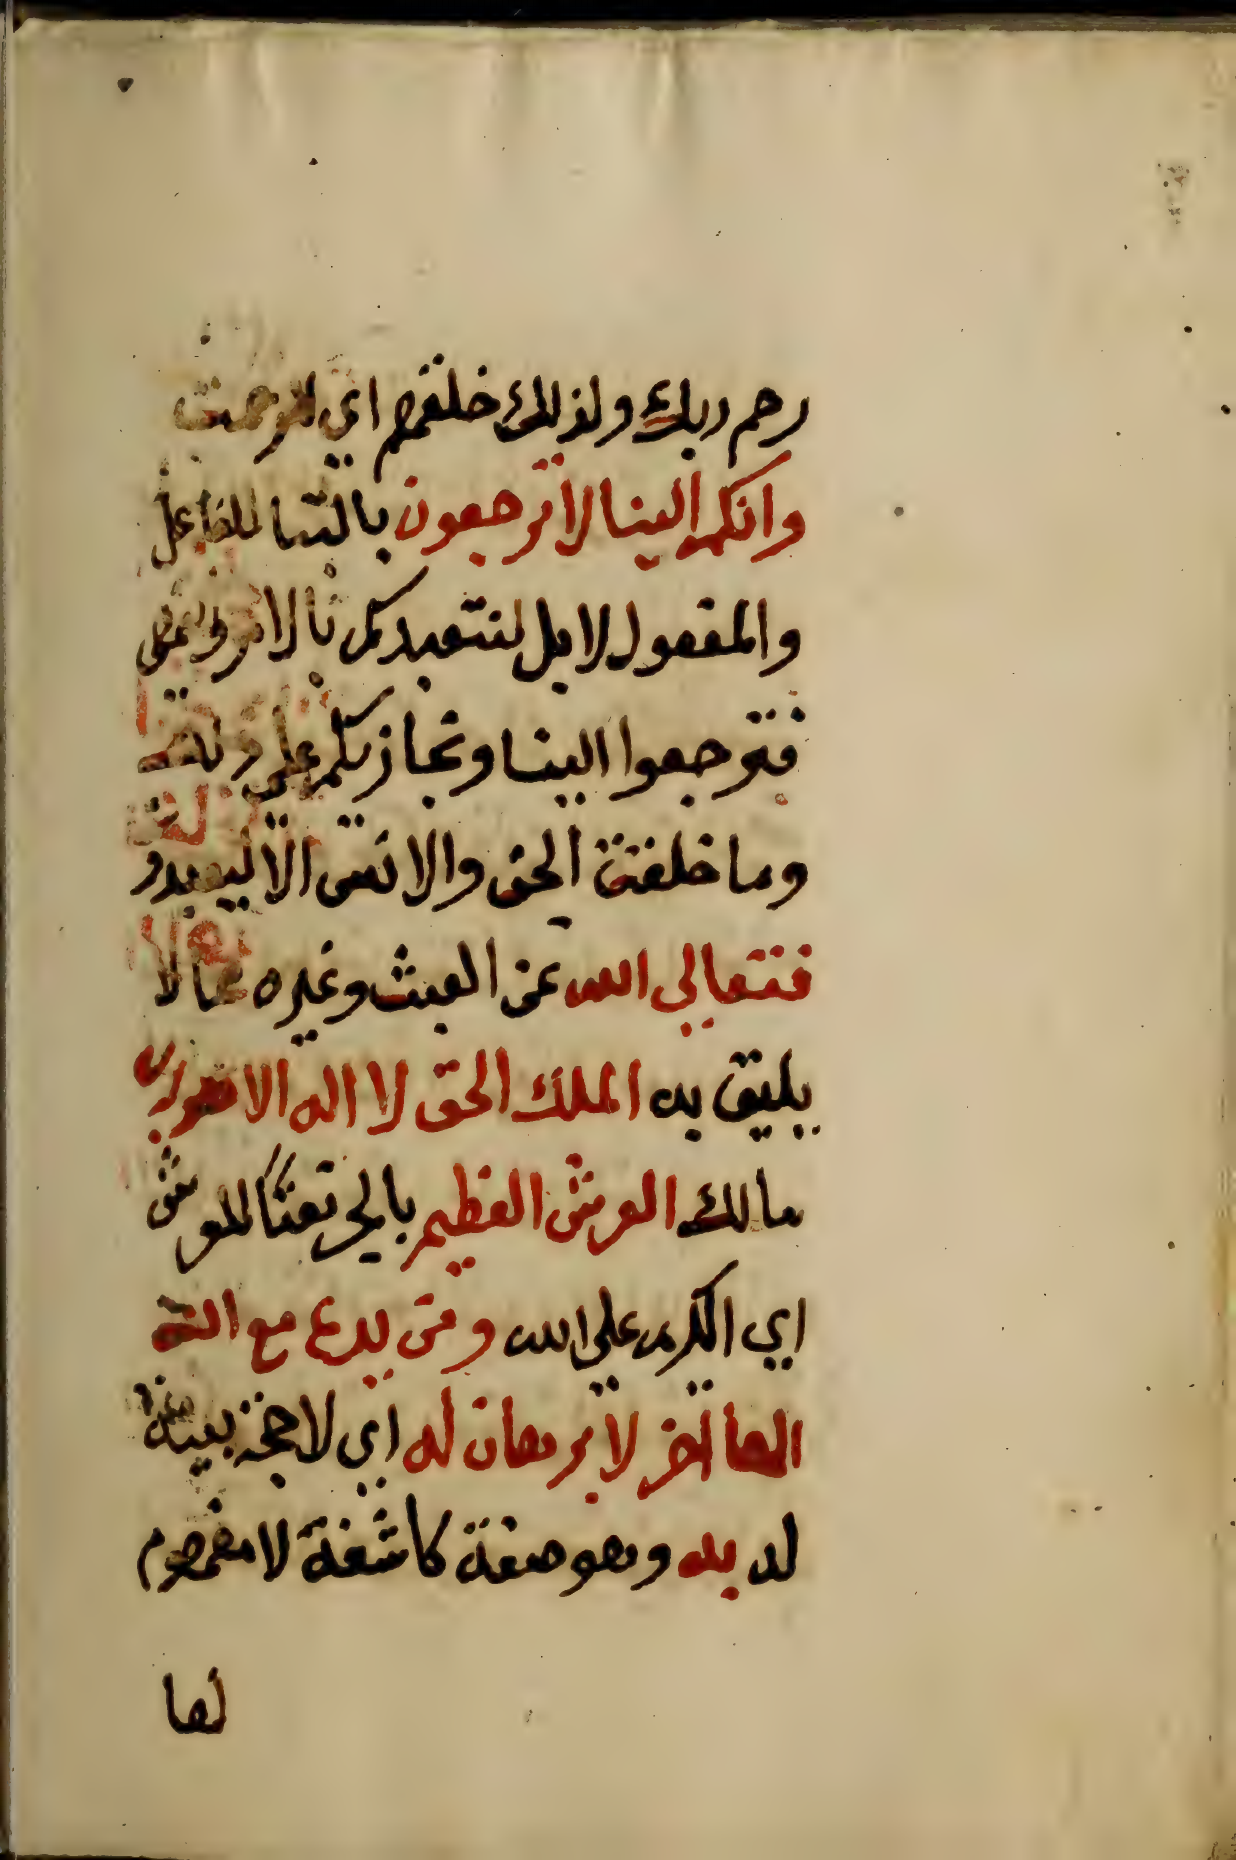 رحم ربك ولذلك خلقهم اي للرحمت
وانكم الينا لا ترجعون بالتا للفاعل
والمفعول لا بل لنتعبدكم بالامر والنهي
فترجعوا الينا ونجازيكم علي ذلك
وما خلقت الجن والانس الا ليعبدو
فتعالي الله عن العبث وغيره مما لا
يليق به الملك الحق لا اله الا هو رب
مالك العرش العظيم بالجر نعتا للعرش
اي الكرم علي الله ومن يدع مع الله
الها اخر لا برهان له اي لا حجة بينة
له به وهو صفة كاشفة لا مفهوم
لها